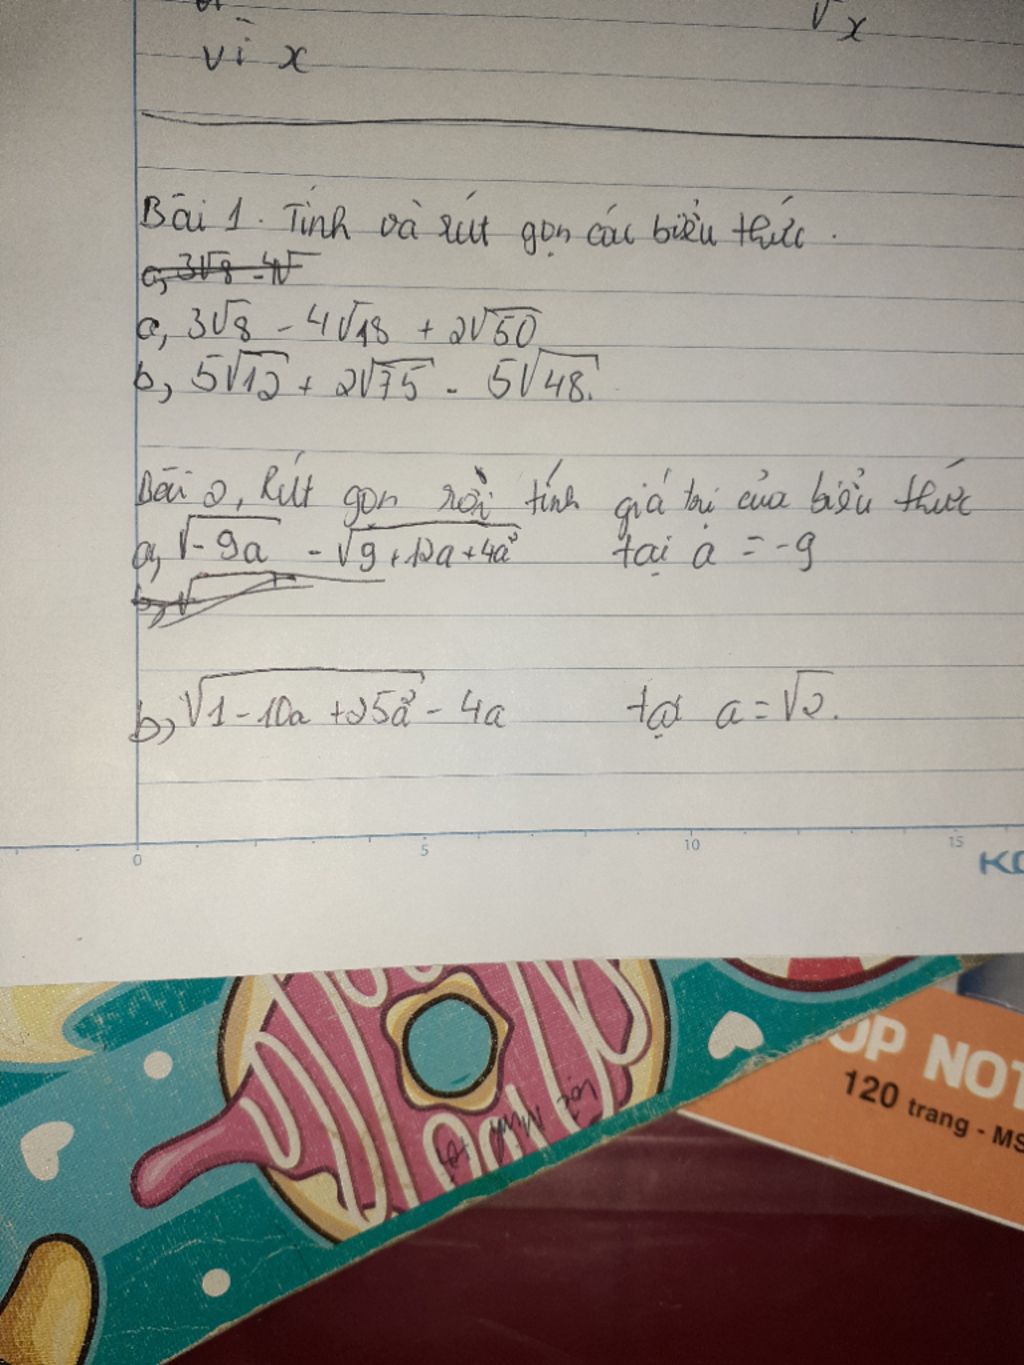 √x
vì x
Bài 1. Tính và rút gọn các biểu thức.
a, 3√8 - 4√
a, 3√8 - 4√18 + 2√50
b, 5√12 + 2√75 - 5√48.
Bài 2, Rút gọn rồi tính giá trị của biểu thức
a, √-9a - √9+12a+4a² tại a = -9
b, √
b, √1-10a+25a² - 4a tại a = √2.
0 5 10 15
KO
OP NOT
120 trang - MS